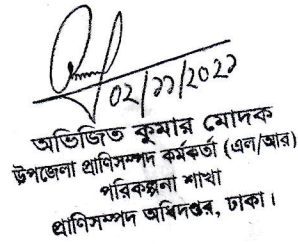 02/11/2022
অভিজিত কুমার মোদক
উপজেলা প্রাণিসম্পদ কর্মকর্তা (এল/আর)
পরিকল্পনা শাখা
প্রাণিসম্পদ অধিদপ্তর, ঢাকা।